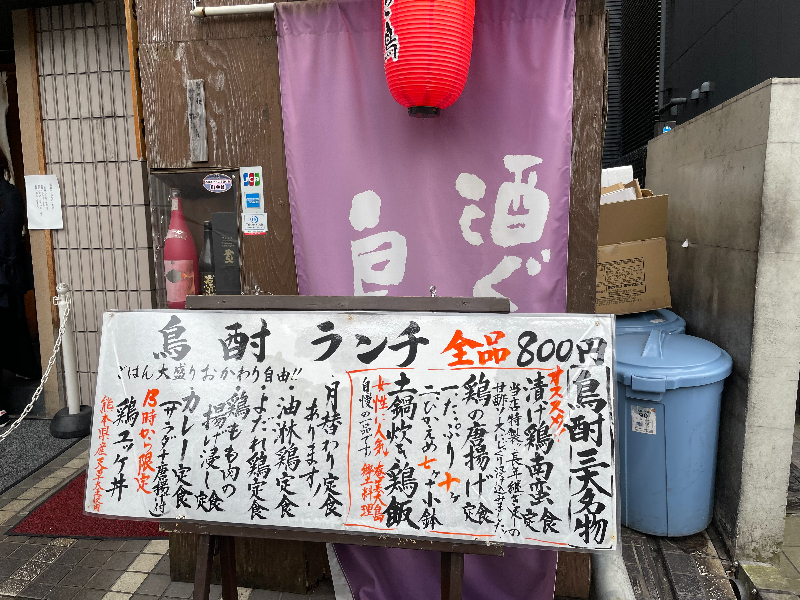 鳥酎 ランチ 全品800円
ごはん大盛りおかわり自由!!
鳥酎三大名物
オススメ!!
漬け鶏南蛮定食
鶏の唐揚げ定食
一.たっぷり十ヶ
二.ひかえめ七ヶ小鉢
土鍋炊き鶏飯
女性に人気 奄美大島
自慢の一品です。郷土料理
・月替わり定食
あります!
・油淋鶏定食
・よだれ鶏定食
・鶏もも肉の
揚げ浸し定食
・カレー定食
(サラダ、唐揚付)
13時から限定
鶏ユッケ丼
熊本県産天草大王使用
酒
ぐ
JCB